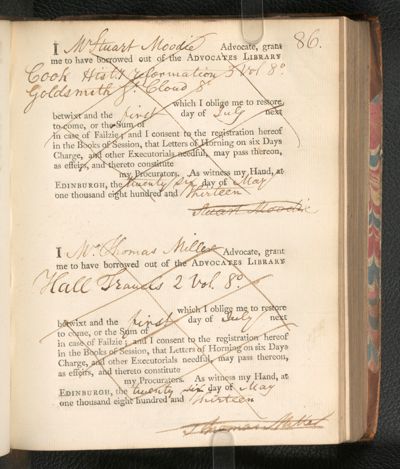 86.
I Mr Stuart Moodie Advocate, grant
me to have borrowed out of the ADVOCATES LIBRARY
Cook Hist. Reformation 3 Vol 8o
Goldsmith St. Cloud 8o
which I oblige me to restore,
betwixt and the first day of July next
to come, or the Sum of
in case of Failzie; and I consent to the registration hereof
in the Books of Session, that Letters of Horning on six Days
Charge, and other Executorials needful, may pass thereon,
as effeirs, and thereto constitute
my Procurators. As witness my Hand, at
EDINBURGH, the twenty six day of May
one thousand eight hundred and thirteen
Stuart Moodie
I Mr Thomas Miller Advocate, grant
me to have borrowed out of the ADVOCATES LIBRARY
Hall Travels 2 Vol. 8o
which I oblige me to restore
betwixt and the first day of July next
to come, or the Sum of
in case of Failzie; and I consent to the registration hereof
in the Books of Session, that Letters of Horning on six Days
Charge, and other Executorials needful, may pass thereon,
as effeirs, and thereto constitute
my Procurators. As witness my Hand, at
EDINBURGH, the twenty six day of May
one thousand eight hundred and thirteen
Thomas Miller